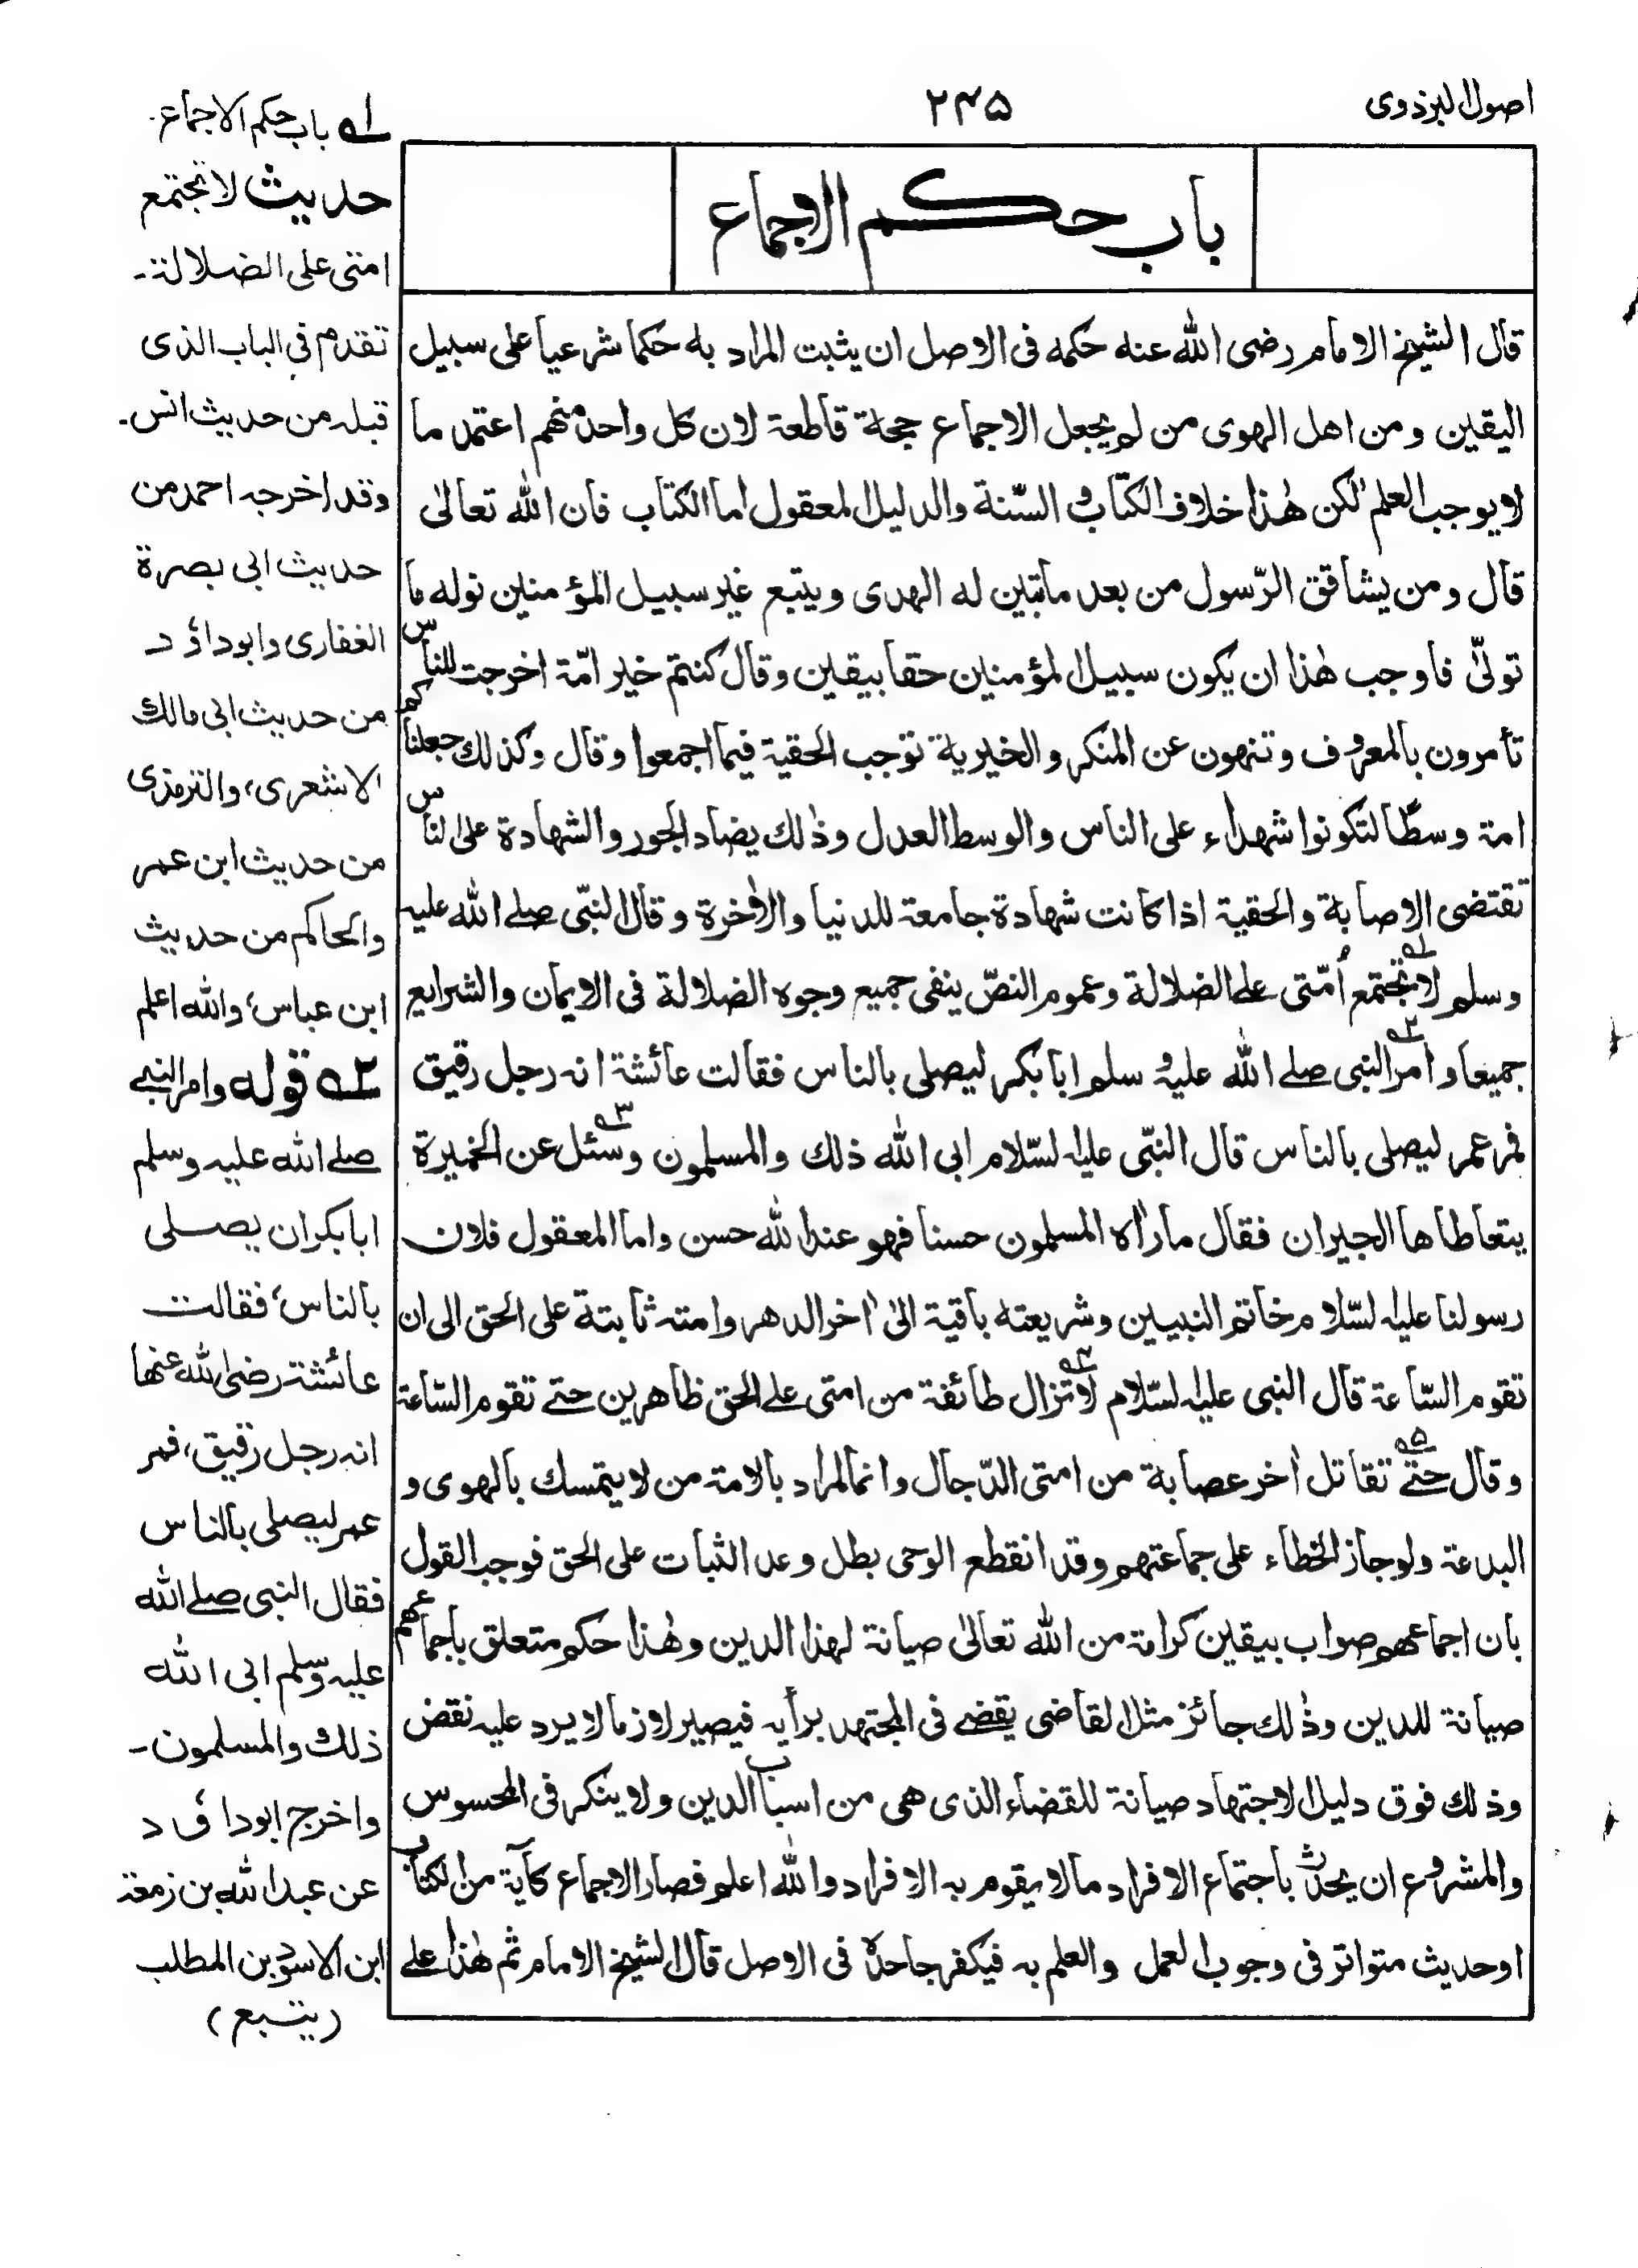 اصول البزدوی
۲۴۵
باب حکم الاجماع
قال الشیخ الامام رضی الله عنه حکمه فی الاصل ان یثبت المراد به حکما شرعیا علی سبیل
الیقین ومن اهل الهوی من لم یجعل الاجماع حجة قاطعة لان کل واحد منهم اعتمد ما
لا یوجب العلم لکن هٰذا خلاف الکتاب و السّنة والدلیل المعقول اما الکتاب فان الله تعالیٰ
قال ومن یشاقق الرّسول من بعد ما تبین له الهدی ویتبع غیر سبیل المؤمنین نوله ما
تولّٰی فاوجب هٰذا ان یکون سبیل المؤمنین حقا بیقین وقال کنتم خیر امّة اخرجت للناس
تأمرون بالمعروف وتنهون عن المنکر والخیریة توجب الحقیة فیما اجمعوا وقال وکذلك جعلناکم
امة وسطًا لتکونوا شهداء علی الناس والوسط العدل وذٰلك یضاد الجور والشهادة علی الناس
تقتضی الاصابة والحقیة اذا کانت شهادة جامعة للدنیا والاٰخرة وقال النّبی صلے الله علیه
وسلم لا تجتمع اُمّتی علے الضلالة وعموم النصّ ینفی جمیع وجوه الضلالة فی الایمان والشرایع
جمیعا وامر النبی صلے الله علیه و سلم ابا بکر لیصلی بالناس فقالت عائشة انه رجل رقیق
فمر عمر لیصلی بالناس قال النبّی علیه السّلام ابی الله ذلك والمسلمون وسئل عن الخمیرة
یتعاطاها الجیران فقال ما راٰه المسلمون حسنا فهو عند الله حسن واما المعقول فلان
رسولنا علیه السّلام خاتم النبیین وشریعته باقیة الیٰ اٰخر الدهر وامته ثابتة علی الحق الی ان
تقوم السّاعة قال النبی علیه السّلام لا تزال طائفة من امتی علے الحق ظاهرین حتے تقوم السّاعة
وقال حتے تقاتل اٰخر عصابة من امتی الدّجال وانما المراد بالامة من لا یتمسك بالهوی و
البدعة ولو جاز الخطاء علی جماعتهم وقد انقطع الوحی بطل وعد الثبات علی الحق فوجب القول
بان اجماعهم صواب بیقین کرامة من الله تعالیٰ صیانة لهذا الدین وهٰذا حکم متعلق باجماعهم
صیانة للدین وذٰلك جائز مثل القاضی یقضے فی المجتهد برأیه فیصیر لازما لا یرد علیه نقض
وذلك فوق دلیل الاجتهاد صیانة للقضاء الذی هی من اسباب الدین ولا ینکر فی المحسوس
والمشروع ان یحدث باجتماع الافراد ما لا یقوم به الافراد والله اعلم فصار الاجماع کآیة من الکتاب
او حدیث متواتر فی وجوب العمل والعلم به فیکفر جاحده فی الاصل قال الشیخ الامام ثم هٰذا علے
۱ باب حکم الاجماع۔
حدیث لا تجتمع
امتی علی الضلالة۔
تقدم فی الباب الذی
قبله من حدیث انس۔
وقد اخرجه احمد من
حدیث ابی بصرة
الغفاری وابوداؤد
من حدیث ابی مالك
الاشعری، والترمذی
من حدیث ابن عمر
والحاکم من حدیث
ابن عباس، والله اعلم
۲ قوله وامر النبے
صلے الله علیه وسلم
ابابکر ان یصلی
بالناس، فقالت
عائشة رضی الله عنها
انه رجل رقیق، فمر
عمر لیصلی بالناس
فقال النبی صلے الله
علیه وسلم ابی الله
ذلك والمسلمون۔
واخرج ابوداؤد
عن عبد الله بن زمعة
ابن الاسود بن المطلب
(یتبع)